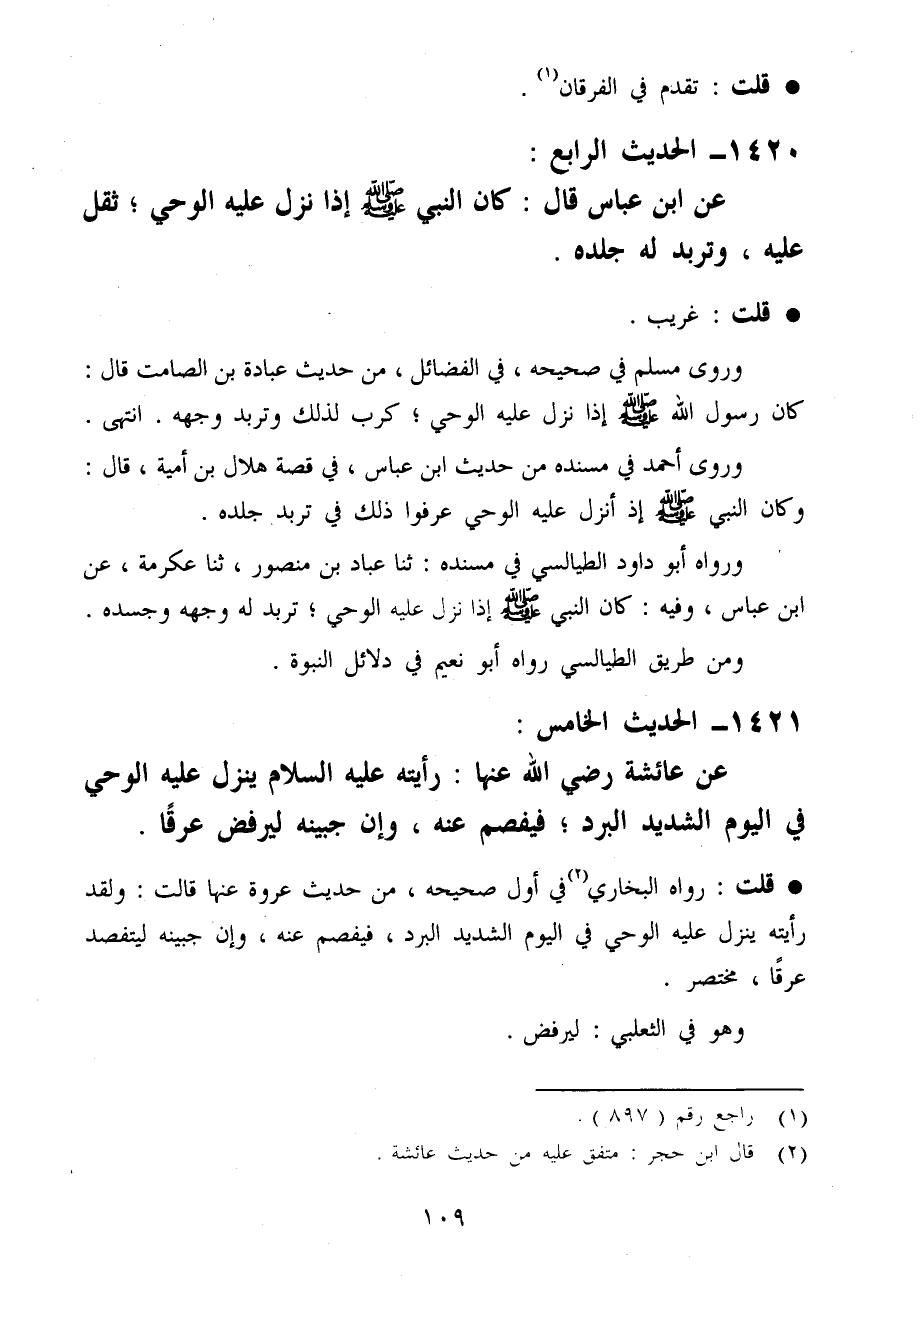 ● قلت : تقدم في الفرقان(١) .
١٤٢٠ـ الحديث الرابع :
عن ابن عباس قال : كان النبي ﷺ إذا نزل عليه الوحي ؛ ثقل
عليه ، وتربد له جلده .
● قلت : غريب .
وروى مسلم في صحيحه ، في الفضائل ، من حديث عبادة بن الصامت قال :
كان رسول الله ﷺ إذا نزل عليه الوحي ؛ كرب لذلك وتربد وجهه . انتهى .
وروى أحمد في مسنده من حديث ابن عباس ، في قصة هلال بن أمية ، قال :
وكان النبي ﷺ إذ أنزل عليه الوحي عرفوا ذلك في تربد جلده .
ورواه أبو داود الطيالسي في مسنده : ثنا عباد بن منصور ، ثنا عكرمة ، عن
ابن عباس ، وفيه : كان النبي ﷺ إذا نزل عليه الوحي ؛ تربد له وجهه وجسده .
ومن طريق الطيالسي رواه أبو نعيم في دلائل النبوة .
١٤٢١ـ الحديث الخامس :
عن عائشة رضي الله عنها : رأيته عليه السلام ينزل عليه الوحي
في اليوم الشديد البرد ؛ فيفصم عنه ، وإن جبينه ليرفض عرقًا .
● قلت : رواه البخاري(٢) في أول صحيحه ، من حديث عروة عنها قالت : ولقد
رأيته ينزل عليه الوحي في اليوم الشديد البرد ، فيفصم عنه ، وإن جبينه ليتفصد
عرقًا ، مختصر .
وهو في الثعلبي : ليرفض .
(١) راجع رقم ( ٨٩٧ ) .
(٢) قال ابن حجر : متفق عليه من حديث عائشة .
١٠٩